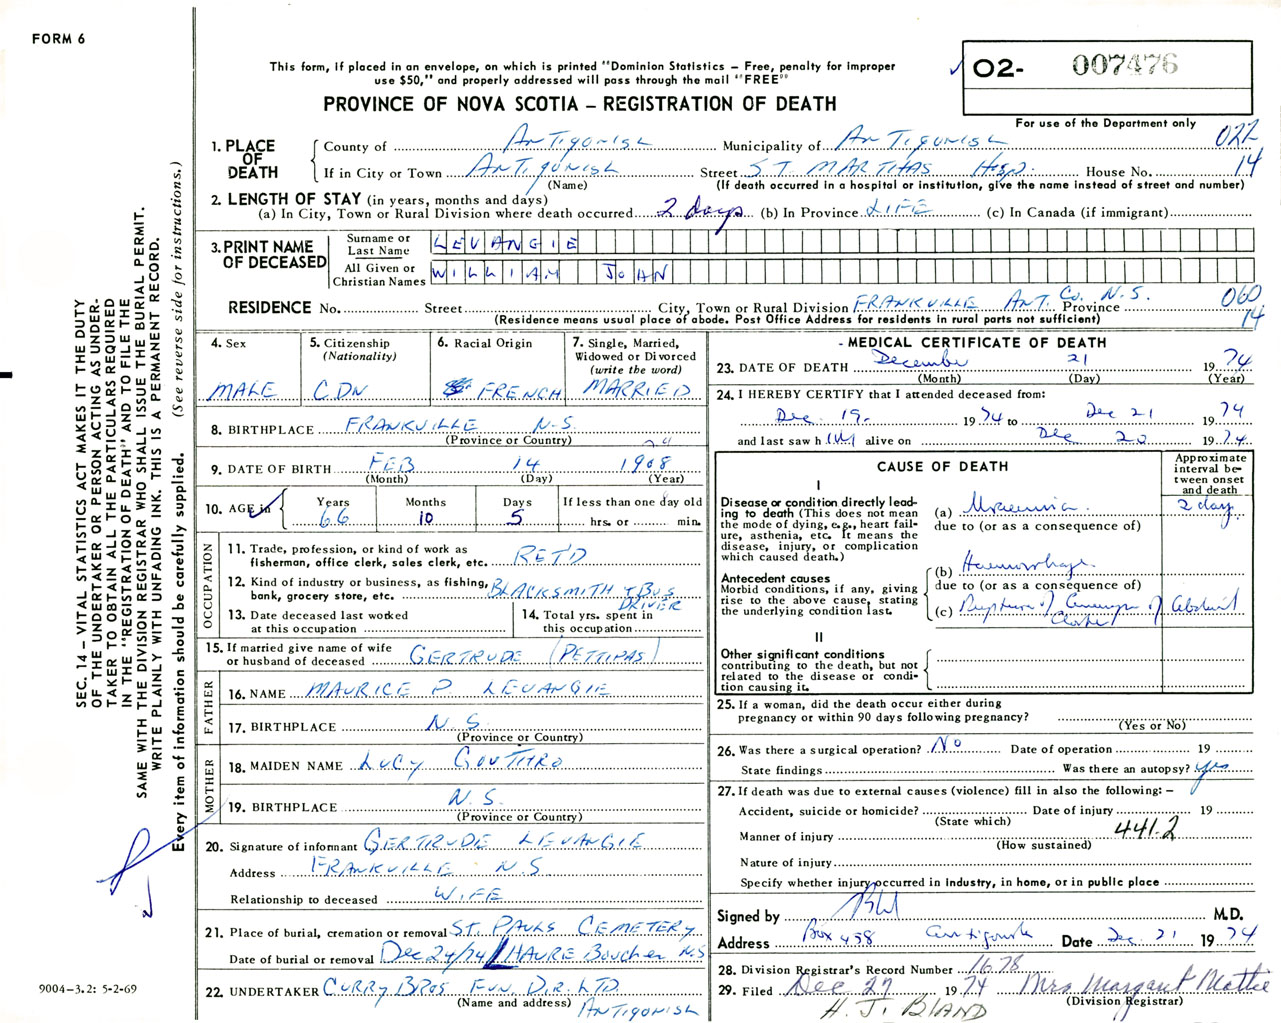 FORM 6
This form, If placed in an envelope, on which is printed "Dominion Statistics – Free, penalty for improper
use $50," and properly addressed will pass through the mail "FREE"
PROVINCE OF NOVA SCOTIA – REGISTRATION OF DEATH
02- 007476
For use of the Department only
022
14
1. PLACE OF DEATH
County of Antigonish Municipality of Antigonish
If in City or Town Antigonish Street ST. MARTHAS Hosp. House No.
(Name) (If death occurred in a hospital or institution, give the name instead of street and number)
2. LENGTH OF STAY (in years, months and days)
(a) In City, Town or Rural Division where death occurred 2 days (b) In Province LIFE (c) In Canada (if immigrant)
3. PRINT NAME OF DECEASED
Surname or Last Name LEVANGIE
All Given or Christian Names WILLIAM JOHN
RESIDENCE No. Street City, Town or Rural Division FRANKVILLE ANT. Co. N.S. Province
(Residence means usual place of abode. Post Office Address for residents in rural parts not sufficient)
060
14
4. Sex MALE
5. Citizenship (Nationality) CDN
6. Racial Origin FRENCH
7. Single, Married, Widowed or Divorced (write the word) MARRIED
8. BIRTHPLACE FRANKVILLE N.S.
(Province or Country)
9. DATE OF BIRTH FEB 14 1908
(Month) (Day) (Year)
10. AGE in Years 66 Months 10 Days 5 If less than one day old hrs. or min.
OCCUPATION
11. Trade, profession, or kind of work as fisherman, office clerk, sales clerk, etc. RET'D
12. Kind of industry or business, as fishing, bank, grocery store, etc. BLACKSMITH & BUS DRIVER
13. Date deceased last worked at this occupation
14. Total yrs. spent in this occupation
15. If married give name of wife or husband of deceased GERTRUDE (PETTIPAS)
FATHER
16. NAME MAURICE P. LEVANGIE
17. BIRTHPLACE N.S.
(Province or Country)
MOTHER
18. MAIDEN NAME LUCY GOUTHRO
19. BIRTHPLACE N.S.
(Province or Country)
20. Signature of informant GERTRUDE LEVANGIE
Address FRANKVILLE N.S
Relationship to deceased WIFE
21. Place of burial, cremation or removal ST. PAULS CEMETERY
Date of burial or removal Dec 24/74 HAVRE Boucher N.S
22. UNDERTAKER CURRY BROS FUN. DIR. LTD.
(Name and address) ANTIGONISH
- MEDICAL CERTIFICATE OF DEATH
23. DATE OF DEATH December 21 1974
(Month) (Day) (Year)
24. I HEREBY CERTIFY that I attended deceased from:
Dec. 19. 1974 to Dec 21 1974
and last saw him alive on Dec 20 1974
CAUSE OF DEATH
Approximate interval between onset and death
I
Disease or condition directly leading to death (This does not mean the mode of dying, e.g., heart failure, asthenia, etc. It means the disease, injury, or complication which caused death.)
(a) Uraemia 2 days
due to (or as a consequence of)
Antecedent causes
Morbid conditions, if any, giving rise to the above cause, stating the underlying condition last.
(b) Haemorrhage
due to (or as a consequence of)
(c) Rupture of aneurysm of abdominal aorta
II
Other significant conditions
contributing to the death, but not related to the disease or condition causing it.
25. If a woman, did the death occur either during pregnancy or within 90 days following pregnancy?
(Yes or No)
26. Was there a surgical operation? No Date of operation 19
State findings Was there an autopsy? yes
27. If death was due to external causes (violence) fill in also the following: –
Accident, suicide or homicide? Date of injury 19
(State which)
441.2
Manner of injury
(How sustained)
Nature of injury
Specify whether injury occurred in industry, in home, or in public place
Signed by M.D.
Address Box 458 Antigonish Date Dec. 21 1974
28. Division Registrar's Record Number 1678
29. Filed Dec 27 1974 Mrs Margaret Mattie
(Division Registrar)
H. J. BLAND
SEC. 14 – VITAL STATISTICS ACT MAKES IT THE DUTY
OF THE UNDERTAKER OR PERSON ACTING AS UNDER-
TAKER TO OBTAIN ALL THE PARTICULARS REQUIRED
IN THE "REGISTRATION OF DEATH" AND TO FILE THE
SAME WITH THE DIVISION REGISTRAR WHO SHALL ISSUE THE BURIAL PERMIT.
WRITE PLAINLY WITH UNFADING INK. THIS IS A PERMANENT RECORD.
Every item of information should be carefully supplied. (See reverse side for instructions.)
9004-3.2: 5-2-69